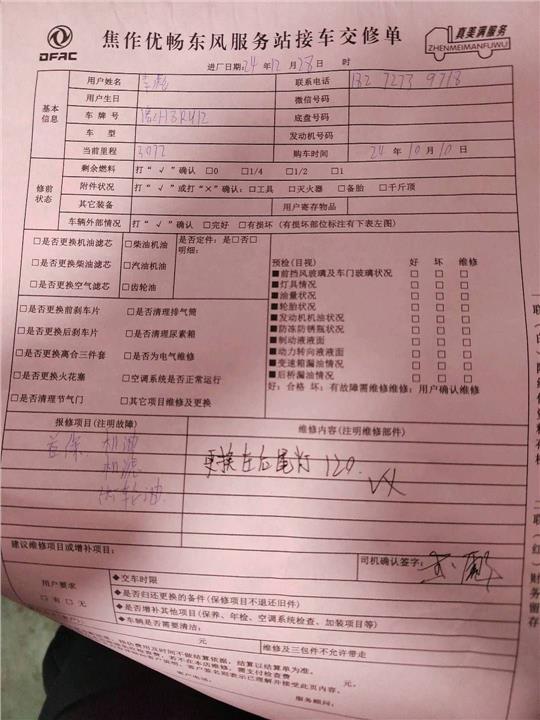 DFAC
焦作优畅东风服务站接车交修单
真美满服务
ZHENMEIMANFUWU
进厂日期:24 年12 月28日 时
基本信息
用户姓名 联系电话 182 7273 9718
用户生日 微信号码
车牌号 底盘号码
车型 发动机号码
当前里程 3072 购车时间 24 年 10 月 10 日
修前状态
剩余燃料 打“√”确认 □0 □1/4 □1/2 □1
附件状况 打“√”或打“×”确认:□工具 □灭火器 □备胎 □千斤顶
其它装备 用户寄存物品
车辆外部情况 打“√”确认 □完好 □有损坏(有损坏部位标注有下表左图)
□是否更换机油滤芯 □柴油机油 是否定件:是□否□
明细:
□是否更换柴油滤芯 □汽油机油
□是否更换空气滤芯 □齿轮油
□是否更换前刹车片 □是否清理排气筒
□是否更换后刹车片 □是否清理尿素箱
□是否更换离合三件套 □是否为电气维修
□是否更换火花塞 □空调系统是否正常运行
□是否清理节气门 □其它项目维修及更换
预检(目视) 好 坏 维修
■前挡风玻璃及车门玻璃状况 □ □ □
■灯具情况 □ □ □
■油量状况 □ □ □
■轮胎状况 □ □ □
■发动机机油状况 □ □ □
■防冻防锈瓶状况 □ □ □
■制动液液面 □ □ □
■动力转向液液面 □ □ □
■变速箱漏油情况 □ □ □
■后桥漏油情况 □ □ □
好:合格 坏:有故障需维修维修:用户确认维修
报修项目(注明故障) 维修内容(注明维修部件)
首保 机油
机滤
齿轮油
更换左后尾灯 120
建议维修项目或增补项目:
司机确认签字:
用户要求
□有 □无
◆交车时限
◆是否归还更换的备件(保修项目不退还旧件)
◆是否增补其他项目(保养、年检、空调系统检查、加装项目等)
◆车辆是否需要清洁:
元 维修及三包件不允许带走
费用及时间不做结算依据,结算以结算单为准。
若不在本店维修,需支付检查费 元,
客户签名则表示已理解并接受此页内容。
客户电话: 服务顾问: